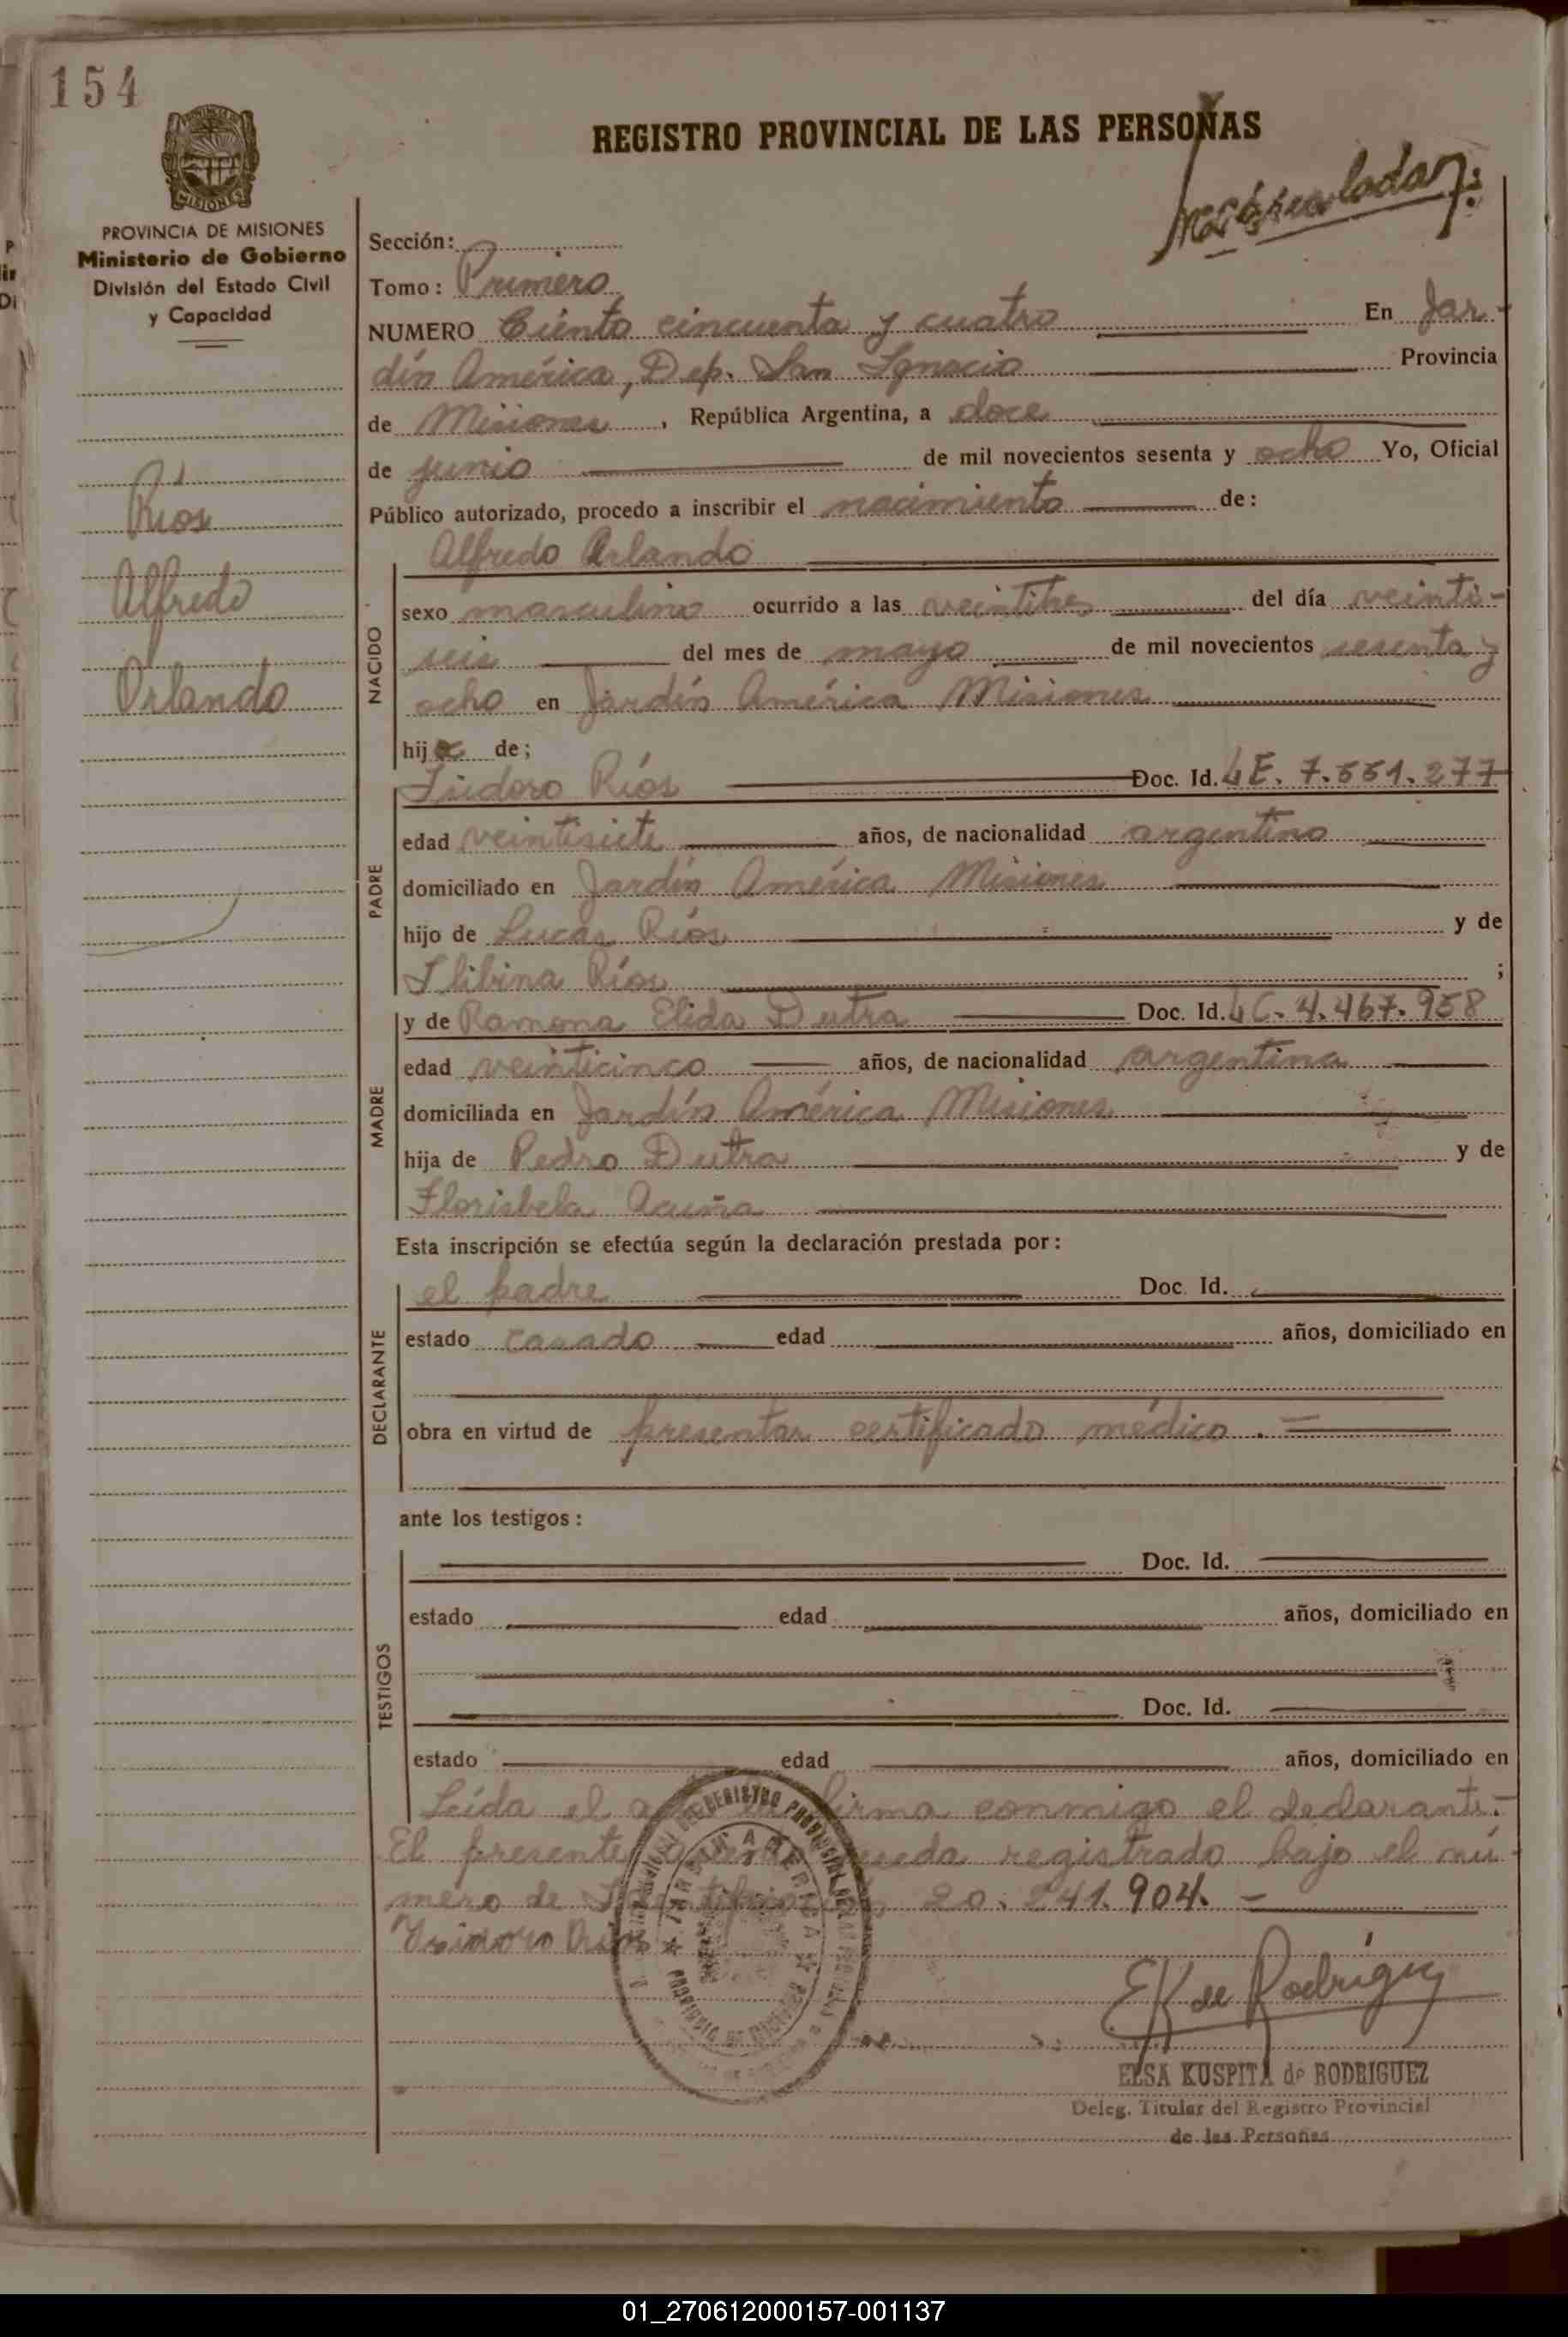 154
REGISTRO PROVINCIAL DE LAS PERSONAS
MISIONES
PROVINCIA DE MISIONES
Ministerio de Gobierno
División del Estado Civil
y Capacidad
Ríos
Alfredo
Orlando
Sección:
Tomo: Primero
NUMERO Ciento cincuenta y cuatro En Jar-
dín América, Dep. San Ignacio Provincia
de Misiones, República Argentina, a doce
de junio de mil novecientos sesenta y ocho Yo, Oficial
Público autorizado, procedo a inscribir el nacimiento de:
Alfredo Orlando
NACIDO
sexo masculino ocurrido a las veintitres del día veinti-
seis del mes de mayo de mil novecientos sesenta y
ocho en Jardín América Misiones
hijo de;
PADRE
Isidoro Ríos Doc. Id. LE. 7.551.277
edad veintisiete años, de nacionalidad argentino
domiciliado en Jardín América Misiones
hijo de Lucas Ríos y de
Ríos ;
MADRE
y de Ramona Elida Dutra Doc. Id. LC. 4.467.958
edad veinticinco años, de nacionalidad argentina
domiciliada en Jardín América Misiones
hija de Pedro Dutra y de
Florisbela Acuña
Esta inscripción se efectúa según la declaración prestada por:
DECLARANTE
el padre Doc. Id.
estado casado edad años, domiciliado en
obra en virtud de presentar certificado médico. =
ante los testigos:
TESTIGOS
Doc. Id.
estado edad años, domiciliado en
Doc. Id.
estado edad años, domiciliado en
Leída el firma conmigo el declarante.-
El presente queda registrado bajo el nú-
mero de 20.241.904. -
EK de Rodríguez
ELSA KUSPITA de RODRIGUEZ
Deleg. Titular del Registro Provincial
de las Personas
01_270612000157-001137